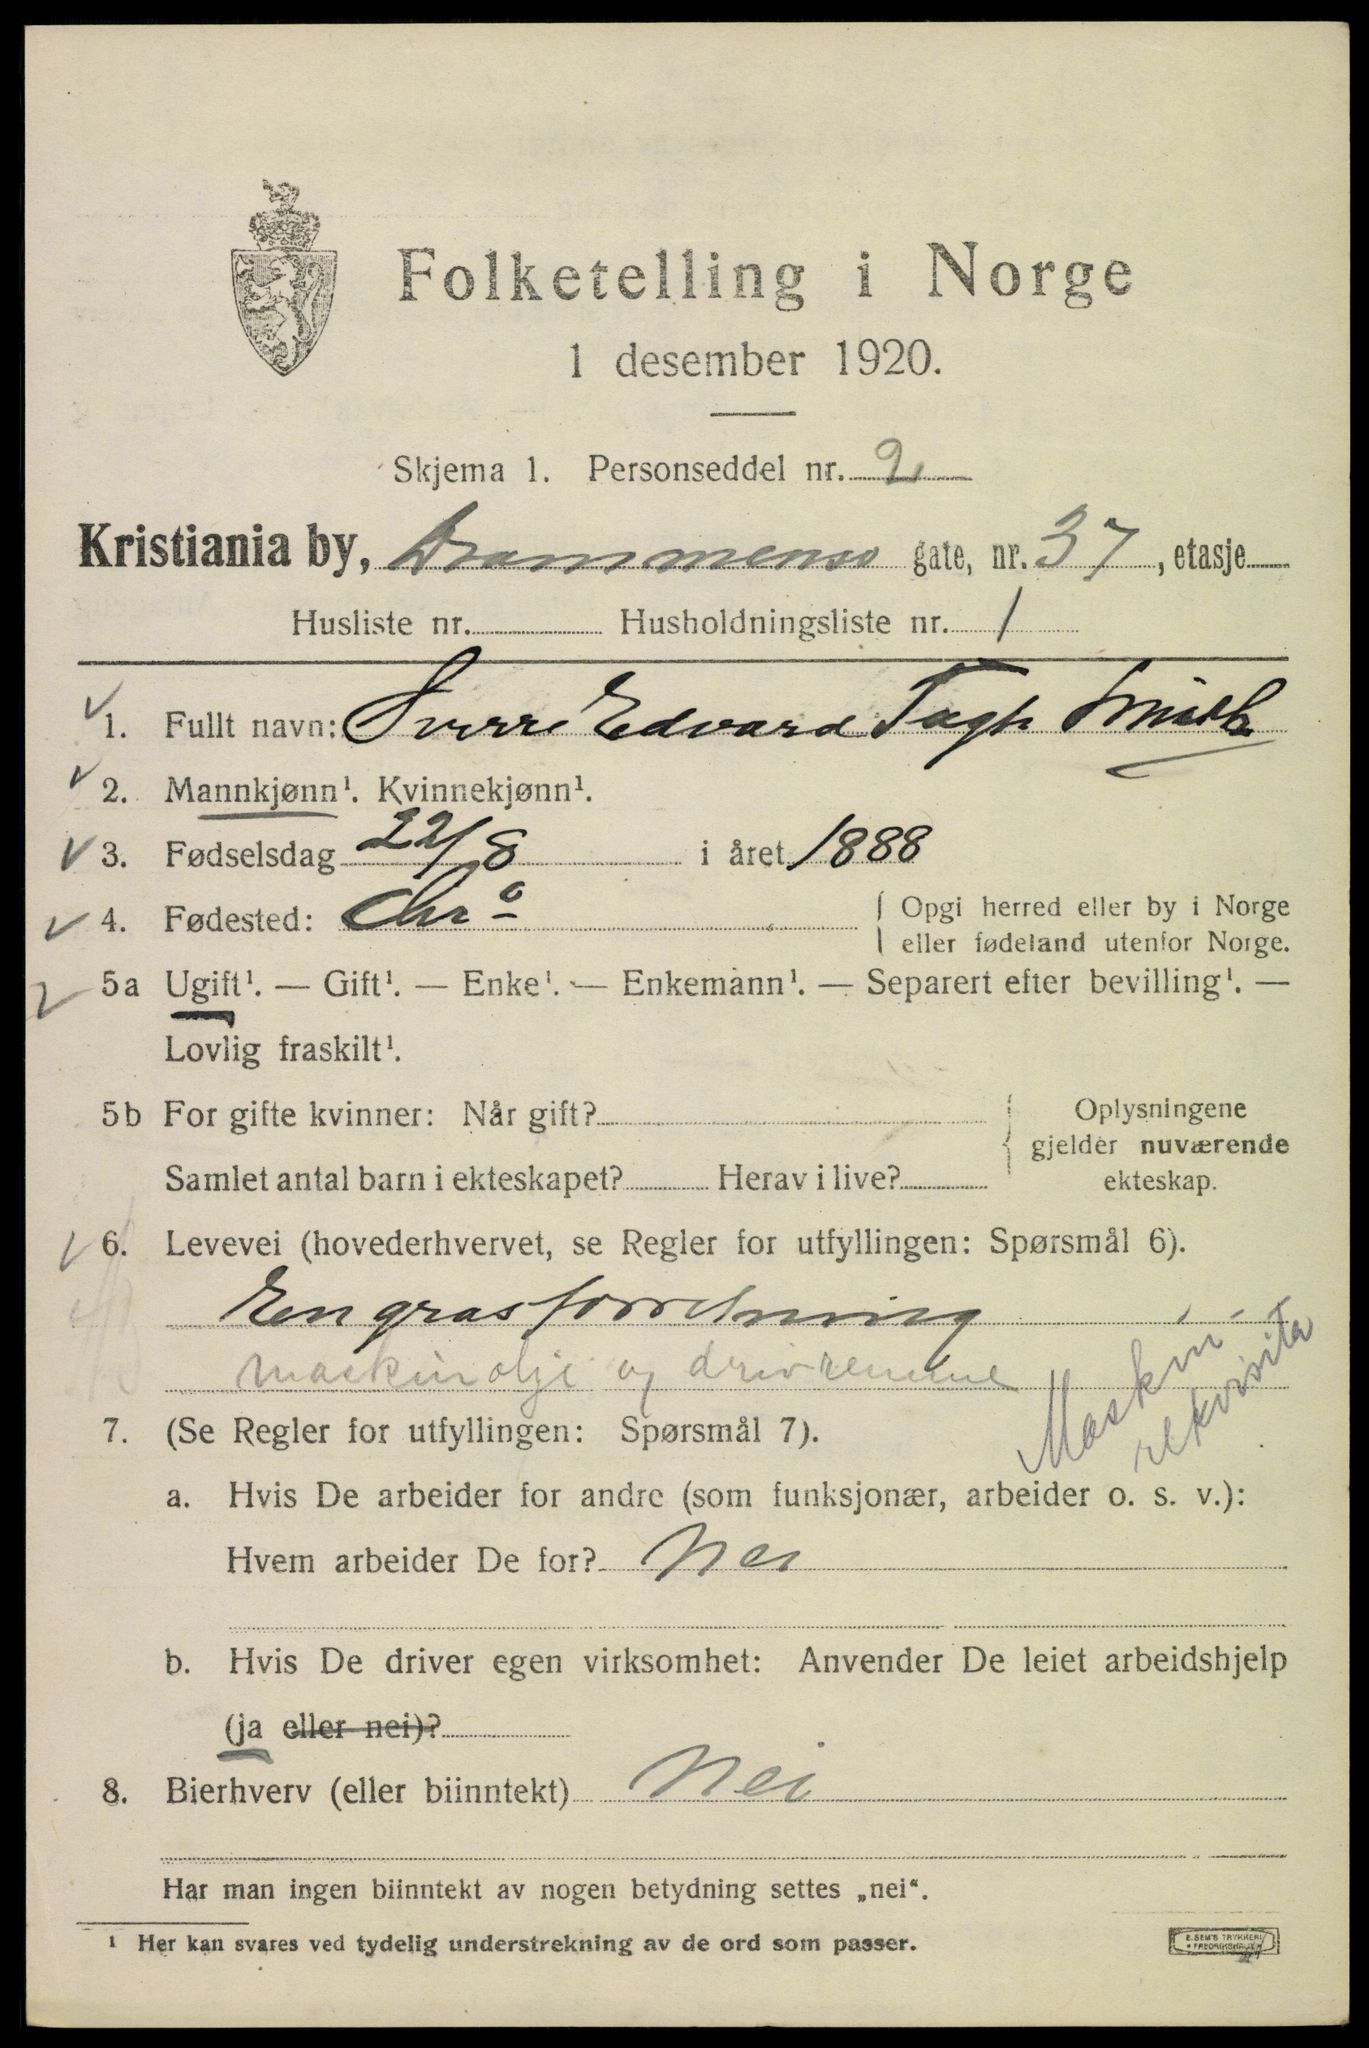 Folketelling i Norge
1 desember 1920.
Skjema 1. Personseddel nr. 2
Kristiania by, Drammens gate, nr. 37, etasje
Husliste nr. Husholdningsliste nr. 1
1. Fullt navn: Sverre Edvard Smith
2. Mannkjønn¹. Kvinnekjønn¹.
3. Fødselsdag 22/8 i året 1888
4. Fødested: Chr⁰
Opgi herred eller by i Norge
eller fødeland utenfor Norge.
5a Ugift¹. — Gift¹. — Enke¹. — Enkemann¹. — Separert efter bevilling¹. —
Lovlig fraskilt¹.
5b For gifte kvinner: Når gift?
Samlet antal barn i ekteskapet? Herav i live?
Oplysningene
gjelder nuværende
ekteskap.
6. Levevei (hovederhvervet, se Regler for utfyllingen: Spørsmål 6).
Engrosforretning
maskinolje og drivremme
Maskin-
rekvisita
7. (Se Regler for utfyllingen: Spørsmål 7).
a. Hvis De arbeider for andre (som funksjonær, arbeider o. s. v.):
Hvem arbeider De for? Nei
b. Hvis De driver egen virksomhet: Anvender De leiet arbeidshjelp
(ja eller nei)?
8. Bierhverv (eller biinntekt) Nei
Har man ingen biinntekt av nogen betydning settes „nei“.
¹ Her kan svares ved tydelig understrekning av de ord som passer.
E. SEM'S TRYKKERI
FREDRIKSHALD